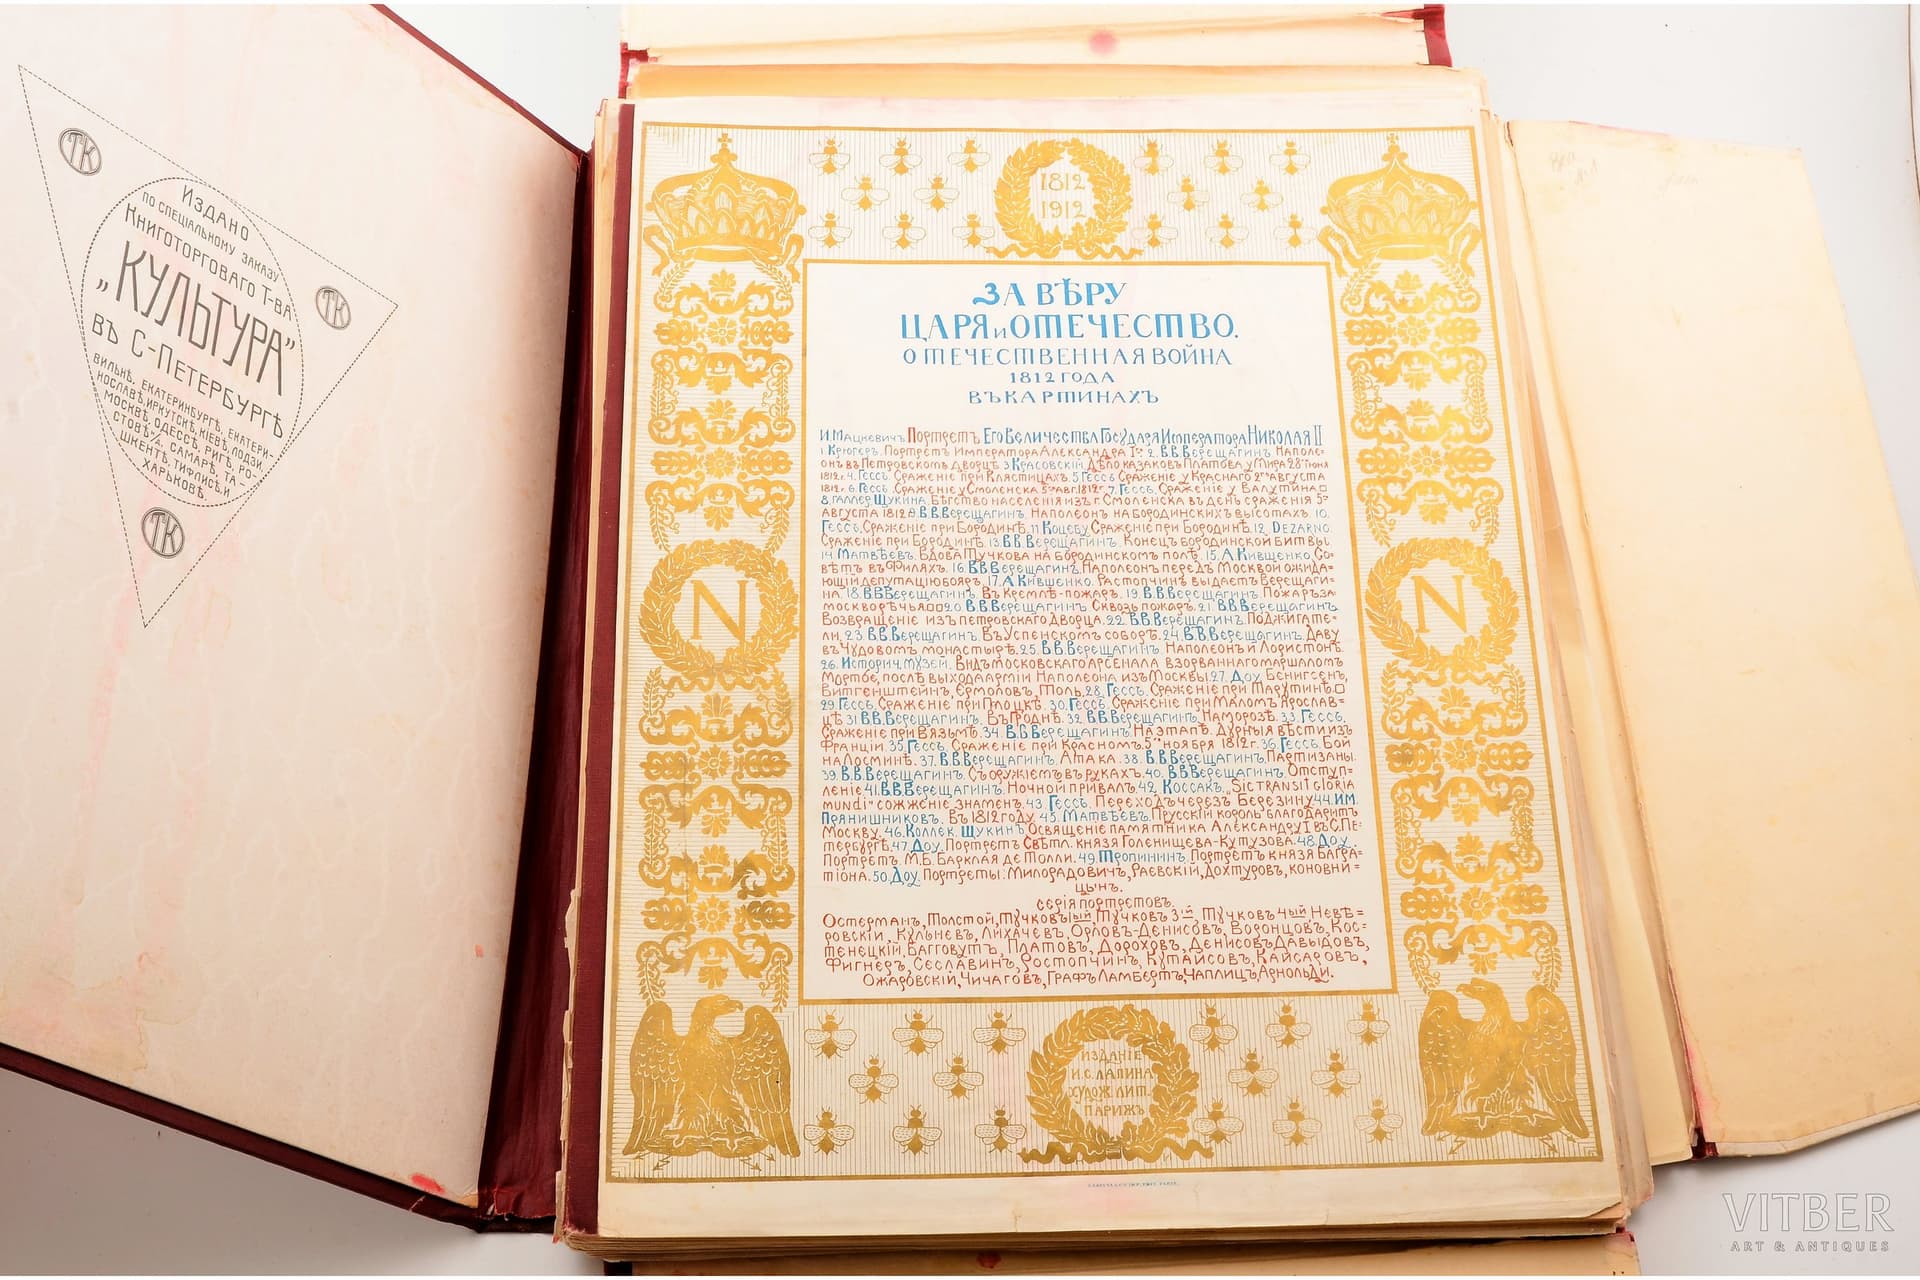 ТК
ТК
ТК
ИЗДАНО
ПО СПЕЦІАЛЬНОМУ ЗАКАЗУ
КНИГОТОРГОВАГО Т-ВА
„КУЛЬТУРА"
ВЪ С-ПЕТЕРБУРГѢ
ВИЛЬНѢ, ЕКАТЕРИНБУРГѢ, ЕКАТЕРИ-
НОСЛАВѢ, ИРКУТСКѢ, КІЕВѢ, ЛОДЗИ,
МОСКВѢ, ОДЕССѢ, РИГѢ, РО-
СТОВѢ н/Д, САМАРѢ, ТА-
ШКЕНТѢ, ТИФЛИСѢ И
ХАРЬКОВѢ.
1812
1912
ЗА ВѢРУ
ЦАРЯ и ОТЕЧЕСТВО.
ОТЕЧЕСТВЕННАЯ ВОЙНА
1812 ГОДА
ВЪ КАРТИНАХЪ
И. Мацкевичъ Портретъ Его Величества Государя Императора Николая II
1 Крюгеръ. Портретъ Императора Александра Iго 2. В.В.Верещагинъ. Наполе-
онъ въ Петровскомъ дворцѣ 3 Красовскій. Дѣло казаковъ Платова у Мира 28го іюня
1812 г. 4. Гессъ. Сраженіе при Клястицахъ. 5 Гессъ Сраженіе у Краснаго 2го августа
1812 г. 6. Гессъ. Сраженіе у Смоленска 5го авг. 1812 г. 7. Гессъ. Сраженіе у Валутина
8 галлер Щукина. Бѣгство населенія изъ г. Смоленска въ день сраженія 5го
августа 1812 9 В.В.Верещагинъ. Наполеонъ на Бородинскихъ высотахъ. 10.
Гессъ. Сраженіе при Бородинѣ. 11 Коцебу Сраженіе при Бородинѣ. 12. Dezarno.
Сраженіе при Бородинѣ. 13. В.В.Верещагинъ. Конецъ Бородинской битвы.
14. Матвѣевъ. Вдова Тучкова на Бородинскомъ полѣ. 15. А.Кившенко. Со-
вѣтъ въ Филяхъ. 16. В.В.Верещагинъ. Наполеонъ передъ Москвой ожида-
ющій депутацію бояръ. 17. А Кившенко. Растопчинъ выдаетъ Верещаги-
на. 18. В.В.Верещагинъ. Въ Кремлѣ-пожаръ. 19. В.В.Верещагинъ. Пожаръ за-
москворѣчья 20 В.В.Верещагинъ Сквозь пожаръ. 21. В.В.Верещагинъ.
Возвращеніе изъ петровскаго Дворца. 22. В.В.Верещагинъ. Поджигате-
ли. 23. В.В.Верещагинъ. Въ Успенскомъ соборѣ. 24. В.В.Верещагинъ. Даву
въ Чудовомъ монастырѣ. 25. В.В.Верещагинъ. Наполеонъ и Лористонъ.
26. Историч. музей. Видъ московскаго арсенала взорваннаго маршаломъ
Мортье, послѣ выхода арміи Наполеона изъ Москвы. 27. Доу. Бенигсенъ,
Витгенштейнъ, Ермоловъ, Толь. 28. Гессъ. Сраженіе при Тарутинѣ.
29. Гессъ. Сраженіе при Полоцкѣ. 30. Гессъ. Сраженіе при Маломъ Ярослав-
цѣ 31 В.В.Верещагинъ. Въ Гроднѣ. 32. В.В.Верещагинъ. На морозѣ. 33. Гессъ.
Сраженіе при Вязьмѣ. 34. В.В.Верещагинъ. На этапѣ. Дурныя вѣсти изъ
Франціи. 35. Гессъ. Сраженіе при Красномъ. 5го ноября 1812 г. 36. Гессъ. Бой
на Лосминѣ. 37. В.В.Верещагинъ. Атака. 38. В.В.Верещагинъ. Партизаны.
39. В.В.Верещагинъ. Съ оружіемъ въ рукахъ. 40. В.В.Верещагинъ. Отступ-
леніе 41. В.В.Верещагинъ. Ночной привалъ. 42. Коссакъ. „Sic transit gloria
mundi" сожженіе знаменъ. 43. Гессъ. Переходъ черезъ Березину 44. Им.
Прянишниковъ. Въ 1812 году. 45. Матвѣевъ. Прусскій король благодаритъ
Москву. 46. Коллек. Щукинъ Освященіе памятника Александру I въ С.Пе-
тербургѣ. 47. Доу. Портретъ Свѣтл. князя Голенищева-Кутузова. 48. Доу.
Портретъ М.Б. Барклая де Толли. 49. Тропининъ. Портретъ князя Багра-
тіона. 50. Доу. Портреты: Милорадовичъ, Раевскій, Дохтуровъ, Коновни-
цынъ.
серія портретовъ.
Остерманъ, Толстой, Тучковъ 1ый, Тучковъ 3ій, Тучковъ 4ый, Невѣ-
ровскій, Кульневъ, Лихачевъ, Орловъ-Денисовъ, Воронцовъ, Кос-
тенецкій, Багговутъ, Платовъ, Дороховъ, Денисовъ Давыдовъ,
Фигнеръ, Сеславинъ, Ростопчинъ, Кутайсовъ, Кайсаровъ,
Ожаровскій, Чичаговъ, Графъ Ламбертъ, Чаплицъ, Арнольди.
N
N
ИЗДАНІЕ
И.С.ЛАПИНА
ХУДОЖ. ЛИТ.
ПАРИЖЪ
VITBER
ART & ANTIQUES